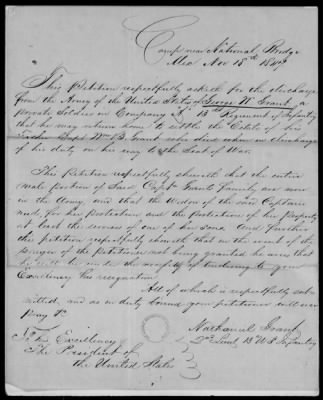 Camp near National Bridge
Mex Nov 18th 1847
This Petition respectfully asketh for the discharge
from the Army of the United States of George W. Grant a
private Soldier in Company 13th Regiment of Infantry
that he may return home to settle the Estate of his
Father Capt Wm B. Grant who died when in discharge
of his duty on his way to the Seat of War.
This Petition respectfully sheweth that the entire
male portion of Said Capt Grants Family are now
in the Army, and that the Widow of the said Captain
need, for her protection and the protection of her property
at least the services of one of her sons. And further
this petition respectfully sheweth that in the event of the
prayer of the Petitioner not being granted he
will be under the necessity of tendering to your
Excellency his resignation.
All of which is respectfully sub-
mitted, and as in duty bound your petitioner will ever
pray &c
Nathaniel Grant
2nd Lieut 13 U S Infantry
To his Excellency
The President of
the United States